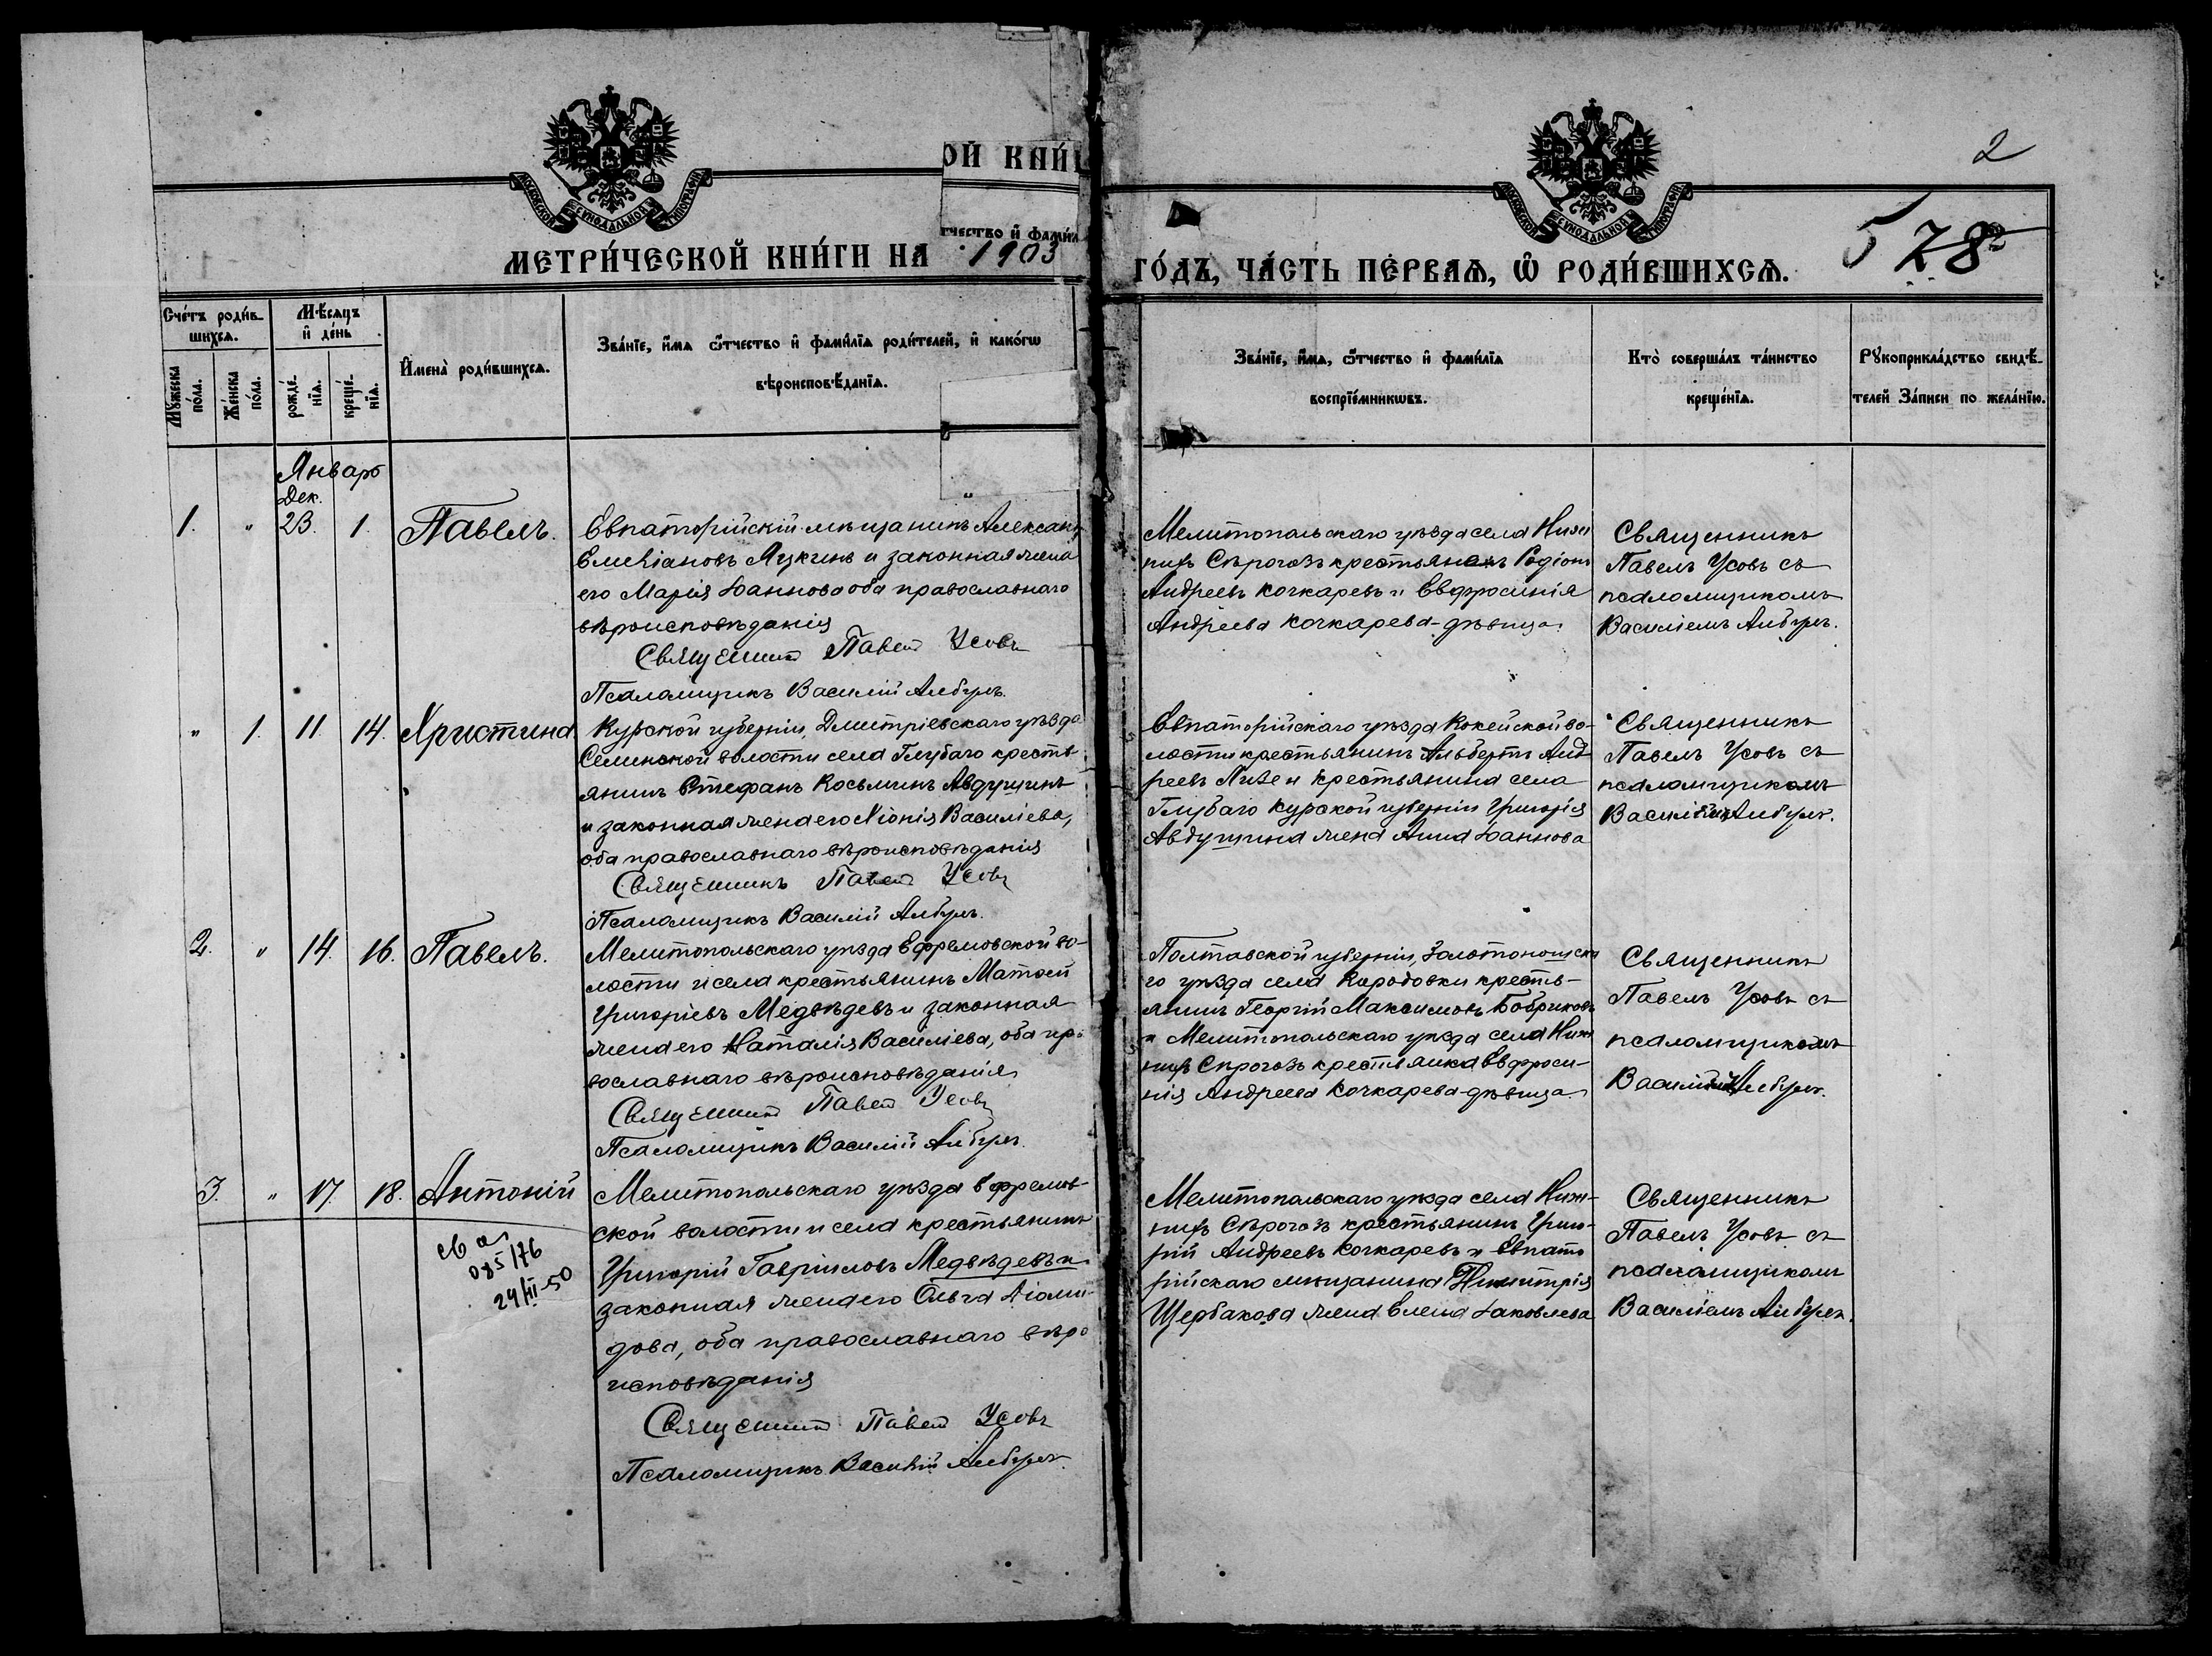 ОЙ КНИ́
2
МОСКОВСКОЙ СѴНОДАЛЬНОЙ ТИПОГРАФІИ
МОСКОВСКОЙ СѴНОДАЛЬНОЙ ТИПОГРАФІИ
тчество и҆ фами́л
578
МЕТРИ́ЧЕСКОЙ КНИ́ГИ НА 1903
ГО́ДЪ, ЧА́СТЬ ПЕ́РВАѦ, Ѡ҆ РОДИ́ВШИХСѦ.
Сче́тъ роди́в-
шихсѧ.
Му́жеска по́ла.
Же́нска по́ла.
Мѣ́сѧцъ и҆ де́нь
рожде́-нїѧ.
креще́-нїѧ.
И҆мена̀ роди́вшихсѧ.
Зва́нїе, и҆́мѧ ѻ҆́тчество и҆ фами́лїѧ роди́телей, и҆ како́гѡ
вѣроисповѣ́данїѧ.
Зва́нїе, и҆́мѧ, ѻ҆́тчество и҆ фами́лїѧ
воспрїе́мникѡвъ.
Кто̀ соверша́лъ та́инство
креще́нїѧ.
Рꙋкоприкла́дство свидѣ́-
телей За́писи по жела́нїю.
Январь
Дек.
1. " 23. 1. Павелъ.
Евпаторійскій мѣщанинъ Александ
Емиліановъ Яцкинъ и законная жена
его Марія Іоаннова оба православнаго
вѣроисповѣданія
Священник Павел Усовъ
Псаломщикъ Василій Албулъ.
Мелитопольскаго уѣзда села Ниж
нихъ Сѣрогозъ крестьянинъ Родіонъ
Андреевъ Кочкаревъ и Евфросинія
Андреева Кочкарева-дѣвица.
Священникъ
Павелъ Усовъ съ
псаломщикомъ
Василіемъ Албулъ.
" 1. 11. 14. Христина
Курской губерніи, Дмитріевскаго уѣзда
волости села Глубаго кресть
янинъ Стефанъ Косьминъ Авдущинъ
и законная жена его Василіева,
оба православнаго вѣроисповѣданія
Священникъ Павел Усовъ
Псаломщикъ Василій Албулъ.
Евпаторійскаго уѣзда Кокейской во-
лости крестьянинъ Альбертъ Анд
реевъ и крестьянина села
Глубаго Курской губерніи Григорія
Авдущина жена Анна Іоаннова
Священникъ
Павелъ Усовъ съ
псаломщикомъ
Василіемъ Албулъ.
2. " 14. 16. Павелъ.
Мелитопольскаго уѣзда Ефремовской во-
лости и села крестьянинъ Матѳей
Григоріевъ Медвѣдевъ и законная
жена его Наталія Василіева, оба пра
вославнаго вѣроисповѣданія
Священник Павел Усовъ
Псаломщикъ Василій Албулъ.
Полтавской губерніи, Золотоношска
го уѣзда села кресть-
янинъ Георгій Максимовъ Бобриковъ
и Мелитопольскаго уѣзда села Ниж
нихъ Сѣрогозъ крестьянка Евфроси-
нія Андреева Кочкарева-дѣвица.
Священникъ
Павелъ Усовъ съ
псаломщикомъ
Василіемъ Албулъ.
3. " 17. 18. Антоній
085/76
24/III-50
Мелитопольскаго уѣзда Ефремов
ской волости и села крестьянинъ
Григорій Гавріиловъ Медвѣдевъ и
законная жена его Ольга Діоми-
дова, оба православнаго вѣро
исповѣданія
Священник Павел Усовъ
Псаломщикъ Василій Албулъ.
Мелитопольскаго уѣзда села Ниж-
нихъ Сѣрогозъ крестьянинъ Григо-
рій Андреевъ Кочкаревъ и Евпато
рійскаго мѣщанина Димитрія
Щербакова жена Елена Іаковлева
Священникъ
Павелъ Усовъ съ
псаломщикомъ
Василіемъ Албулъ.